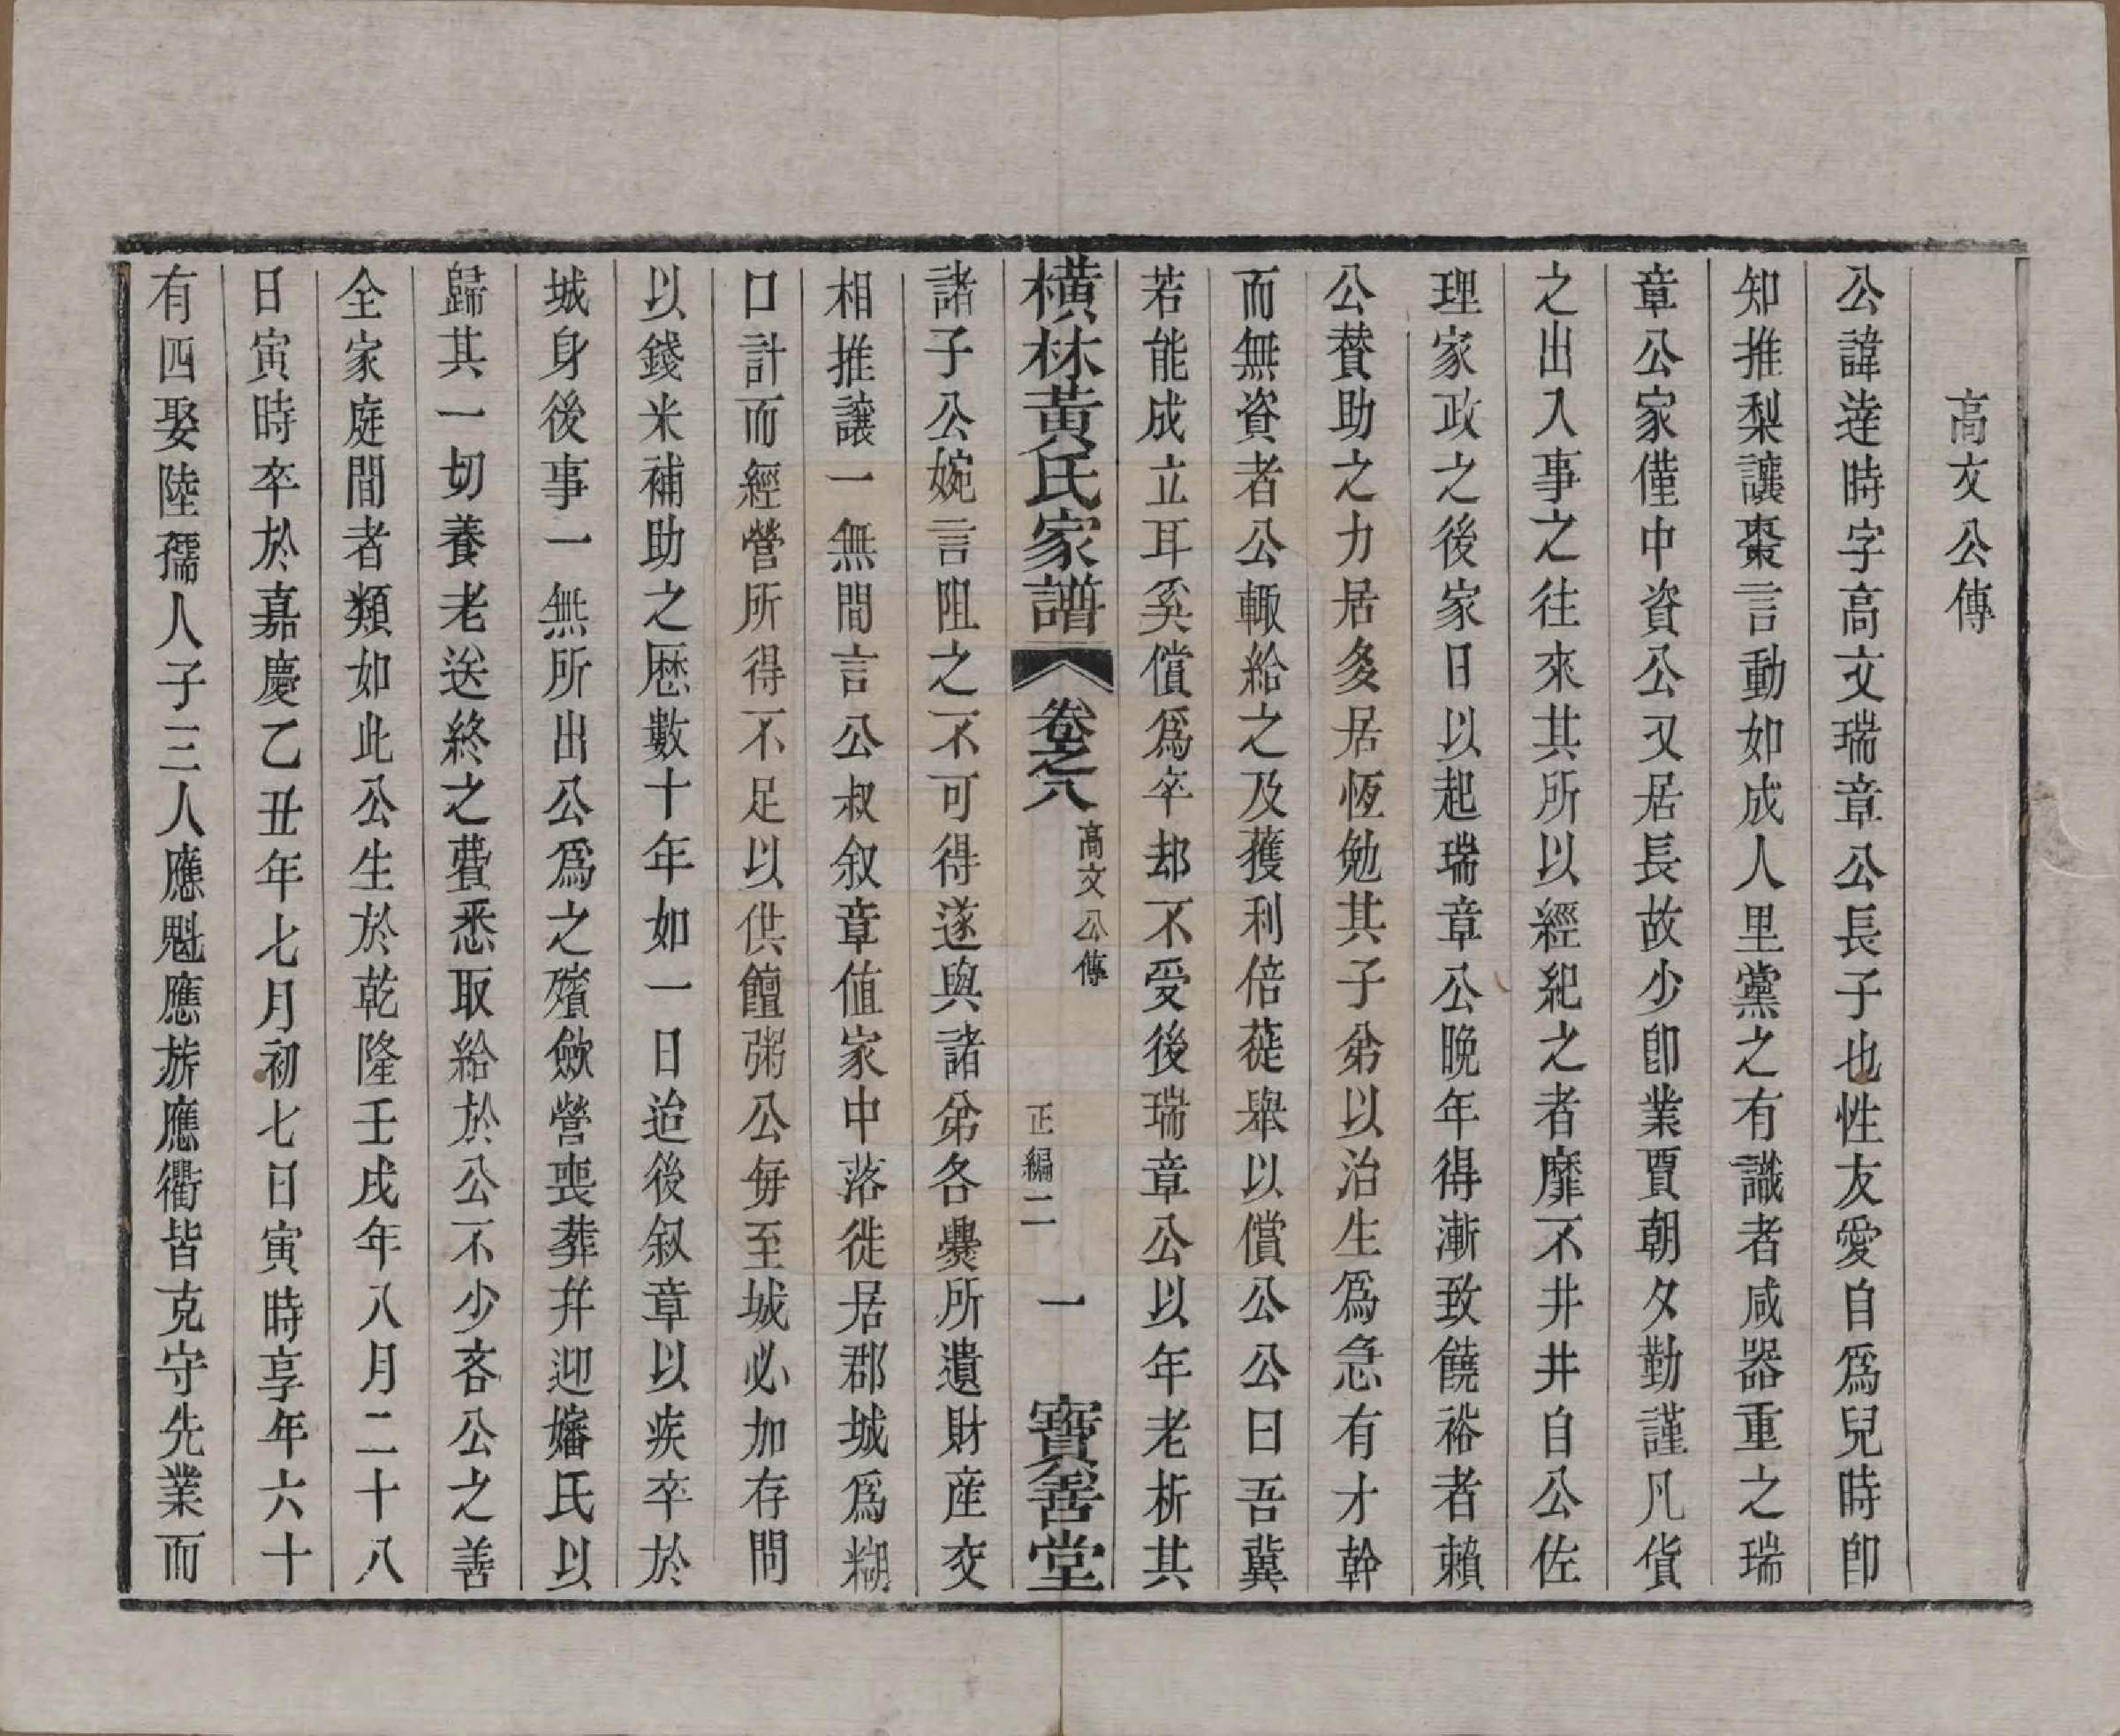 高文公傳
公諱達時字高文瑞章公長子也性友愛自爲兒時卽
知推梨讓棗言動如成人里黨之有識者咸器重之瑞
章公家僅中資公又居長故少卽業賈朝夕勤謹凡貨
之出入事之往來其所以經紀之者靡不井井自公佐
理家政之後家日以起瑞章公晚年得漸致饒裕者賴
公賛助之力居多居恆勉其子弟以治生爲急有才幹
而無資者公輙給之及獲利倍蓰舉以償公公曰吾冀
若能成立耳奚償爲卒却不受後瑞章公以年老析其
橫林黃氏家譜 卷之八 高文公傳 正編二 一 寶善堂
諸子公婉言阻之不可得遂與諸弟各爨所遺財産交
相推讓一無間言公叔叙章値家中落徙居郡城爲糊
口計而經營所得不足以供饘粥公每至城必加存問
以錢米補助之歷數十年如一日迨後叙章以疾卒於
城身後事一無所出公爲之殯歛營喪葬幷迎嬸氏以
歸其一切養老送終之費悉取給於公不少吝公之善
全家庭間者類如此公生於乾隆壬戌年八月二十八
日寅時卒於嘉慶乙丑年七月初七日寅時享年六十
有四娶陸孺人子三人應魁應旂應衢皆克守先業而